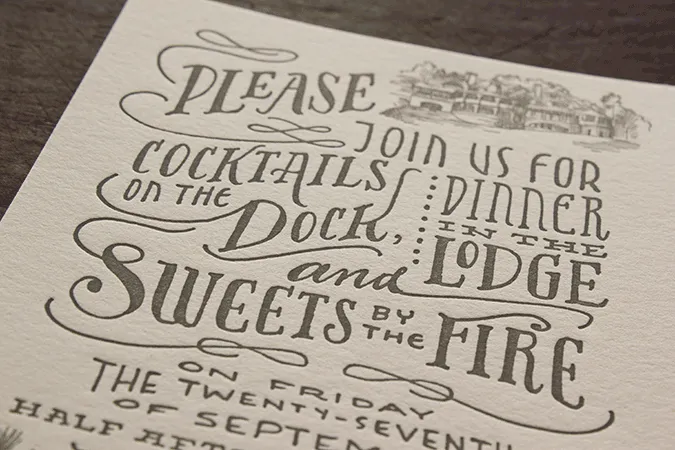 PLEASE
JOIN US FOR
COCKTAILS
ON THE
DOCK,
DINNER
IN THE
LODGE
and
SWEETS BY THE FIRE
ON FRIDAY
THE TWENTY-SEVENTH
OF
HALF